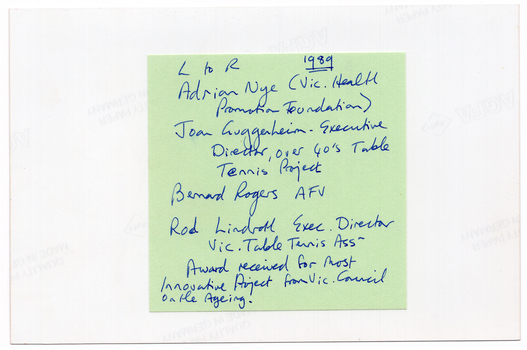 L to R 1989
Adrian Nye (Vic. Health
Promotion Foundation)
Joan Guggenheim - Executive
Director, over 40's Table
Tennis Project
Bernard Rogers AFV
Rod Lindroth Exec. Director
Vic. Table Tennis Assn
Award received for Most
Innovative Project from Vic. Council
On the Ageing.